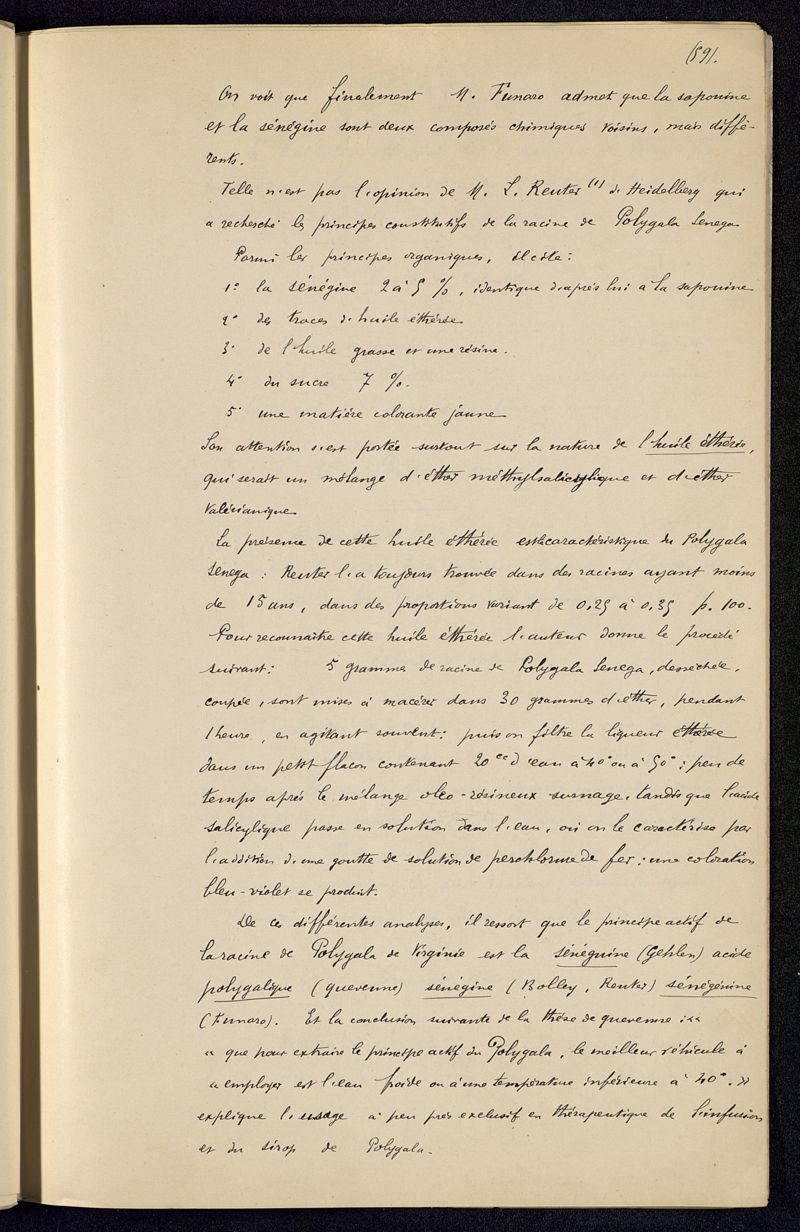 (89).
On voit que finalement M. Funaro admet que la saponine
et la sénégine sont deux composés chimiques voisins, mais diffé-
rents.
Telle n'est pas l'opinion de M. L. Reuter (1) de Heidelberg qui
a recherché les principes constitutifs de la racine de Polygala Senega
Parmi les principes organiques, il cite :
1° la sénégine 2 à 5 %, identique d'après lui à la saponine
2° des traces d'huile éthérée
3° de l'huile grasse et une résine.
4° du sucre 7 %.
5° une matière colorante jaune
Son attention s'est portée surtout sur la nature de l'huile éthérée,
qui serait un mélange d'éther méthylsalicylique et d'éther
valérianique
La présence de cette huile éthérée est caractéristique du Polygala
Senega : Reuter l'a toujours trouvée dans des racines ayant moins
de 15 ans, dans des proportions variant de 0,25 à 0,35 p. 100.
Pour reconnaître cette huile éthérée l'auteur donne le procédé
suivant : 5 grammes de racine de Polygala Senega, desséchée,
coupée, sont mises à macérer dans 30 grammes d'éther, pendant
1 heure, en agitant souvent : puis on filtre la liqueur éthérée
dans un petit flacon contenant 20 cc d'eau à 40° ou à 50° ; peu de
temps après le mélange oleo-résineux surnage, tandis que l'acide
salicylique passe en solution dans l'eau, où on le caractérise par
l'addition d'une goutte de solution de perchlorure de fer : une coloration
bleu-violet se produit.
De ces différentes analyses, il ressort que le principe actif de
la racine de Polygala de Virginie est la sénéguine (Gehlen) acide
polygalique (Quevenne) sénégine (Bolley, Reuter) sénégénine
(Funaro). Et la conclusion suivante de la thèse de Quevenne : «
« que pour extraire le principe actif du Polygala, le meilleur véhicule à
« employer est l'eau froide ou à une température inférieure à 40°. »
explique l'usage à peu près exclusif en thérapeutique de l'infusion
et du sirop de Polygala.